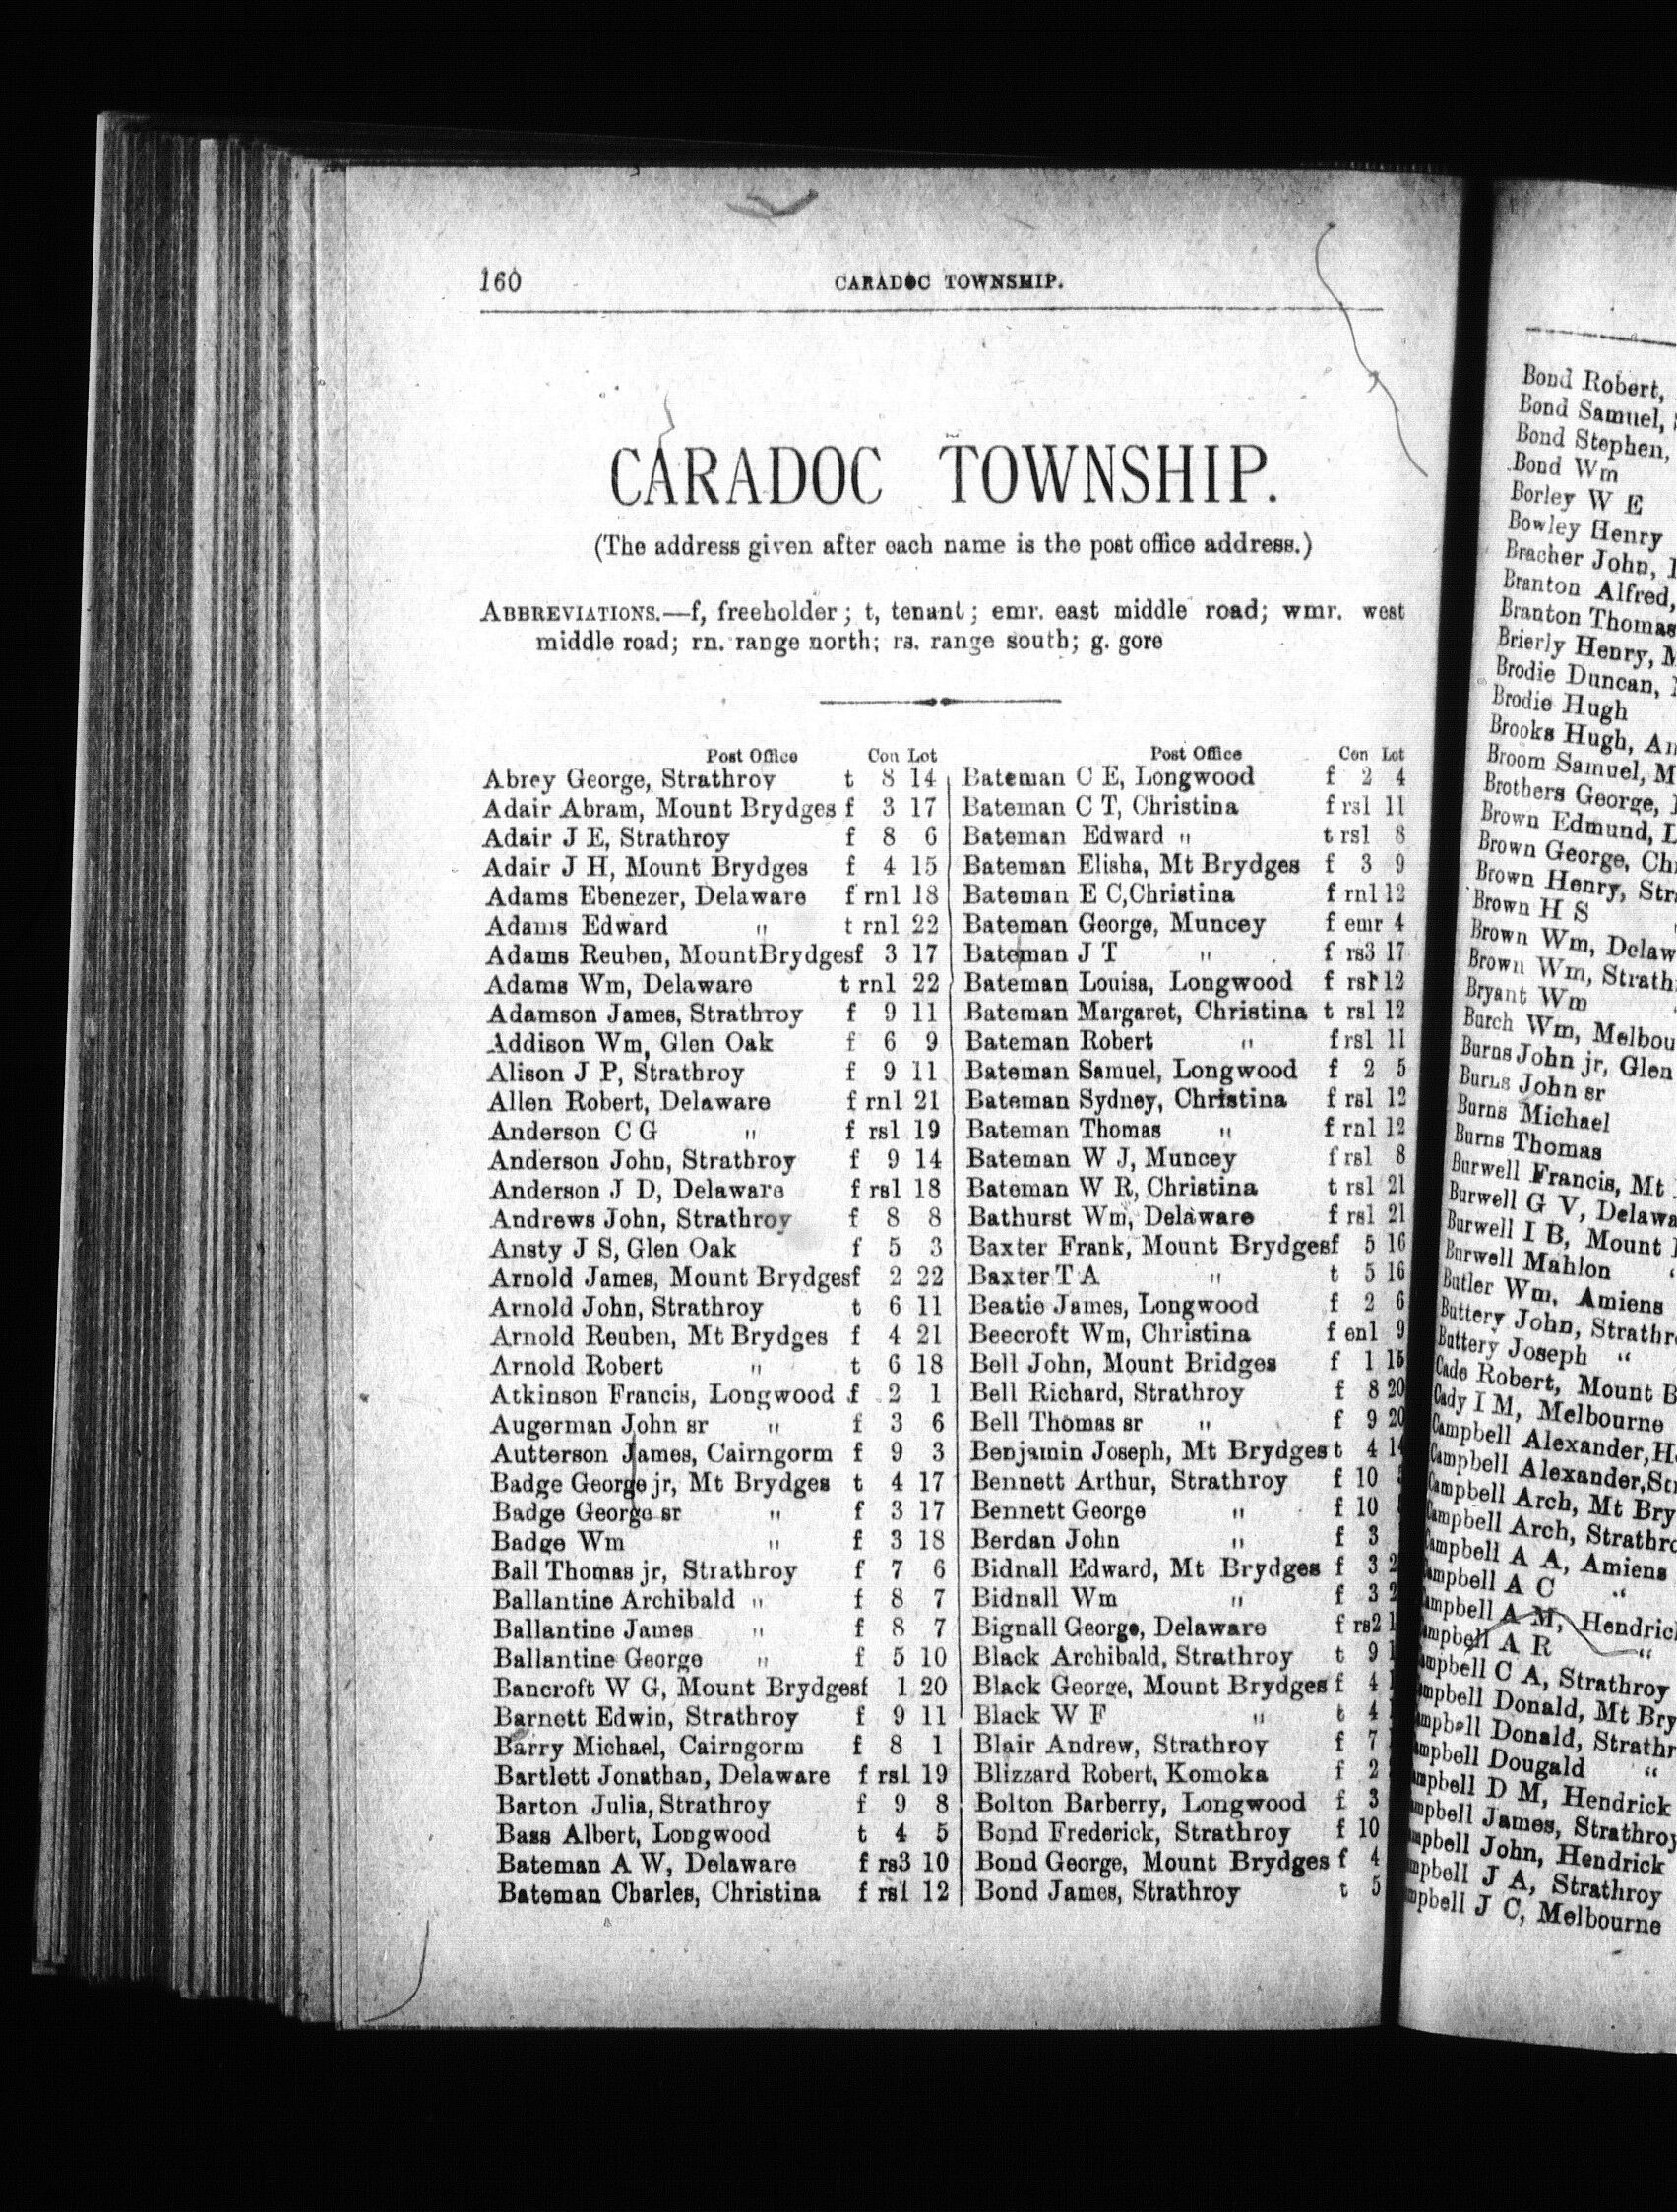 160 CARADOC TOWNSHIP.
CARADOC TOWNSHIP.
(The address given after each name is the post office address.)
ABBREVIATIONS.—f, freeholder; t, tenant; emr. east middle road; wmr. west
middle road; rn. range north; rs. range south; g. gore
Post Office Con Lot
Abrey George, Strathroy t 8 14
Adair Abram, Mount Brydges f 3 17
Adair J E, Strathroy f 8 6
Adair J H, Mount Brydges f 4 15
Adams Ebenezer, Delaware f rn1 18
Adams Edward " t rn1 22
Adams Reuben, MountBrydgesf 3 17
Adams Wm, Delaware t rn1 22
Adamson James, Strathroy f 9 11
Addison Wm, Glen Oak f 6 9
Alison J P, Strathroy f 9 11
Allen Robert, Delaware f rn1 21
Anderson C G " f rs1 19
Anderson John, Strathroy f 9 14
Anderson J D, Delaware f rs1 18
Andrews John, Strathroy f 8 8
Ansty J S, Glen Oak f 5 3
Arnold James, Mount Brydgesf 2 22
Arnold John, Strathroy t 6 11
Arnold Reuben, Mt Brydges f 4 21
Arnold Robert " t 6 18
Atkinson Francis, Longwood f 2 1
Augerman John sr " f 3 6
Autterson James, Cairngorm f 9 3
Badge George jr, Mt Brydges t 4 17
Badge George sr " f 3 17
Badge Wm " f 3 18
Ball Thomas jr, Strathroy f 7 6
Ballantine Archibald " f 8 7
Ballantine James " f 8 7
Ballantine George " f 5 10
Bancroft W G, Mount Brydgesf 1 20
Barnett Edwin, Strathroy f 9 11
Barry Michael, Cairngorm f 8 1
Bartlett Jonathan, Delaware f rs1 19
Barton Julia, Strathroy f 9 8
Bass Albert, Longwood t 4 5
Bateman A W, Delaware f rs3 10
Bateman Charles, Christina f rs1 12
Post Office Con Lot
Bateman C E, Longwood f 2 4
Bateman C T, Christina f rs1 11
Bateman Edward " t rs1 8
Bateman Elisha, Mt Brydges f 3 9
Bateman E C,Christina f rn1 12
Bateman George, Muncey f emr 4
Bateman J T " f rs3 17
Bateman Louisa, Longwood f rs1 12
Bateman Margaret, Christina t rs1 12
Bateman Robert " f rs1 11
Bateman Samuel, Longwood f 2 5
Bateman Sydney, Christina f rs1 12
Bateman Thomas " f rn1 12
Bateman W J, Muncey f rs1 8
Bateman W R, Christina t rs1 21
Bathurst Wm, Delaware f rs1 21
Baxter Frank, Mount Brydgesf 5 16
Baxter T A " t 5 16
Beatie James, Longwood f 2 6
Beecroft Wm, Christina f en1 9
Bell John, Mount Bridges f 1 15
Bell Richard, Strathroy f 8 20
Bell Thomas sr " f 9 20
Benjamin Joseph, Mt Brydges t 4 14
Bennett Arthur, Strathroy f 10
Bennett George " f 10
Berdan John " f 3
Bidnall Edward, Mt Brydges f 3 2
Bidnall Wm " f 3 2
Bignall George, Delaware f rs2 1
Black Archibald, Strathroy t 9 1
Black George, Mount Brydges f 4 1
Black W F " t 4
Blair Andrew, Strathroy f 7
Blizzard Robert, Komoka f 2
Bolton Barberry, Longwood f 3
Bond Frederick, Strathroy f 10
Bond George, Mount Brydges f 4
Bond James, Strathroy t 5
Bond Robert,
Bond Samuel,
Bond Stephen,
Bond Wm
Borley W E
Bowley Henry
Bracher John,
Branton Alfred,
Branton Thomas
Brierly Henry, M
Brodie Duncan,
Brodie Hugh
Brooks Hugh, Am
Broom Samuel, M
Brothers George,
Brown Edmund, L
Brown George, Chi
Brown Henry, Stra
Brown H S
Brown Wm, Delaw
Brown Wm, Strath
Bryant Wm
Burch Wm, Melbou
Burns John jr, Glen
Burns John sr
Burns Michael
Burns Thomas
Burwell Francis, Mt
Burwell G V, Delawa
Burwell I B, Mount
Burwell Mahlon
Butler Wm, Amiens
Buttery John, Strathr
Buttery Joseph "
Cade Robert, Mount B
Cady I M, Melbourne
Campbell Alexander,H
Campbell Alexander,Str
Campbell Arch, Mt Bry
Campbell Arch, Strathro
ampbell A A, Amiens
ampbell A C "
ampbell A M, Hendric
ampbell A R "
mpbell C A, Strathroy
mpbell Donald, Mt Bry
mpbell Donald, Strathr
mpbell Dougald "
mpbell D M, Hendrick
mpbell James, Strathroy
mpbell John, Hendrick
mpbell J A, Strathroy
mpbell J C, Melbourne